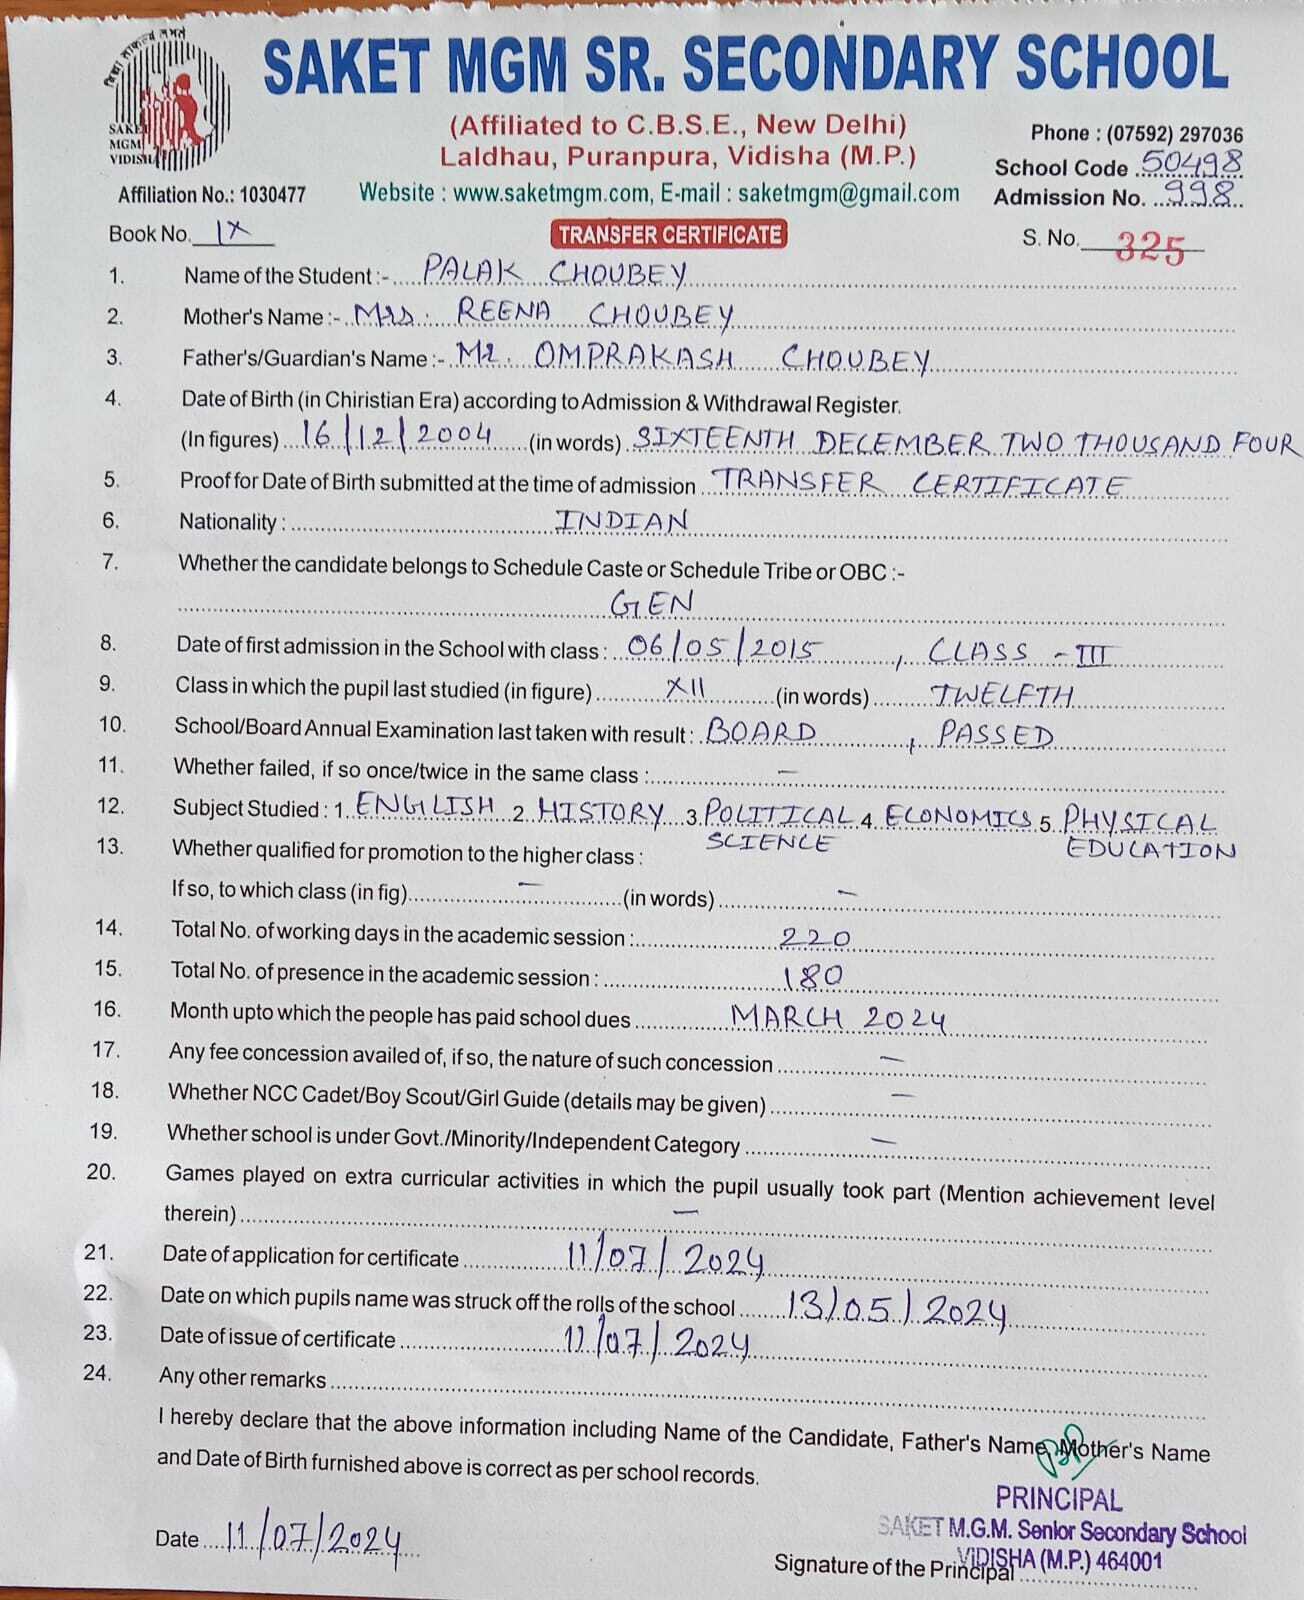 विद्या साफल्य लभते
SAKET
MGM
VIDISHA
SAKET MGM SR. SECONDARY SCHOOL
(Affiliated to C.B.S.E., New Delhi)
Laldhau, Puranpura, Vidisha (M.P.)
Phone : (07592) 297036
School Code 50498
Affiliation No.: 1030477
Website : www.saketmgm.com, E-mail : saketmgm@gmail.com
Admission No. 998
Book No. IX
TRANSFER CERTIFICATE
S. No. 325
1. Name of the Student :- PALAK CHOUBEY
2. Mother's Name :- Mrs. REENA CHOUBEY
3. Father's/Guardian's Name :- Mr. OMPRAKASH CHOUBEY
4. Date of Birth (in Chiristian Era) according to Admission & Withdrawal Register.
(In figures) 16/12/2004 (in words) SIXTEENTH DECEMBER TWO THOUSAND FOUR
5. Proof for Date of Birth submitted at the time of admission TRANSFER CERTIFICATE
6. Nationality : INDIAN
7. Whether the candidate belongs to Schedule Caste or Schedule Tribe or OBC :-
GEN
8. Date of first admission in the School with class : 06/05/2015 , CLASS - III
9. Class in which the pupil last studied (in figure) XII (in words) TWELFTH
10. School/Board Annual Examination last taken with result : BOARD , PASSED
11. Whether failed, if so once/twice in the same class : –
12. Subject Studied : 1. ENGLISH 2. HISTORY 3. POLITICAL SCIENCE 4. ECONOMICS 5. PHYSICAL EDUCATION
13. Whether qualified for promotion to the higher class :
If so, to which class (in fig) – (in words) –
14. Total No. of working days in the academic session : 220
15. Total No. of presence in the academic session : 180
16. Month upto which the people has paid school dues MARCH 2024
17. Any fee concession availed of, if so, the nature of such concession –
18. Whether NCC Cadet/Boy Scout/Girl Guide (details may be given) –
19. Whether school is under Govt./Minority/Independent Category –
20. Games played on extra curricular activities in which the pupil usually took part (Mention achievement level
therein) –
21. Date of application for certificate 11/07/2024
22. Date on which pupils name was struck off the rolls of the school 13/05/2024
23. Date of issue of certificate 11/07/2024
24. Any other remarks
I hereby declare that the above information including Name of the Candidate, Father's Name, Mother's Name
and Date of Birth furnished above is correct as per school records.
PRINCIPAL
SAKET M.G.M. Senior Secondary School
VIDISHA (M.P.) 464001
Date 11/07/2024
Signature of the Principal